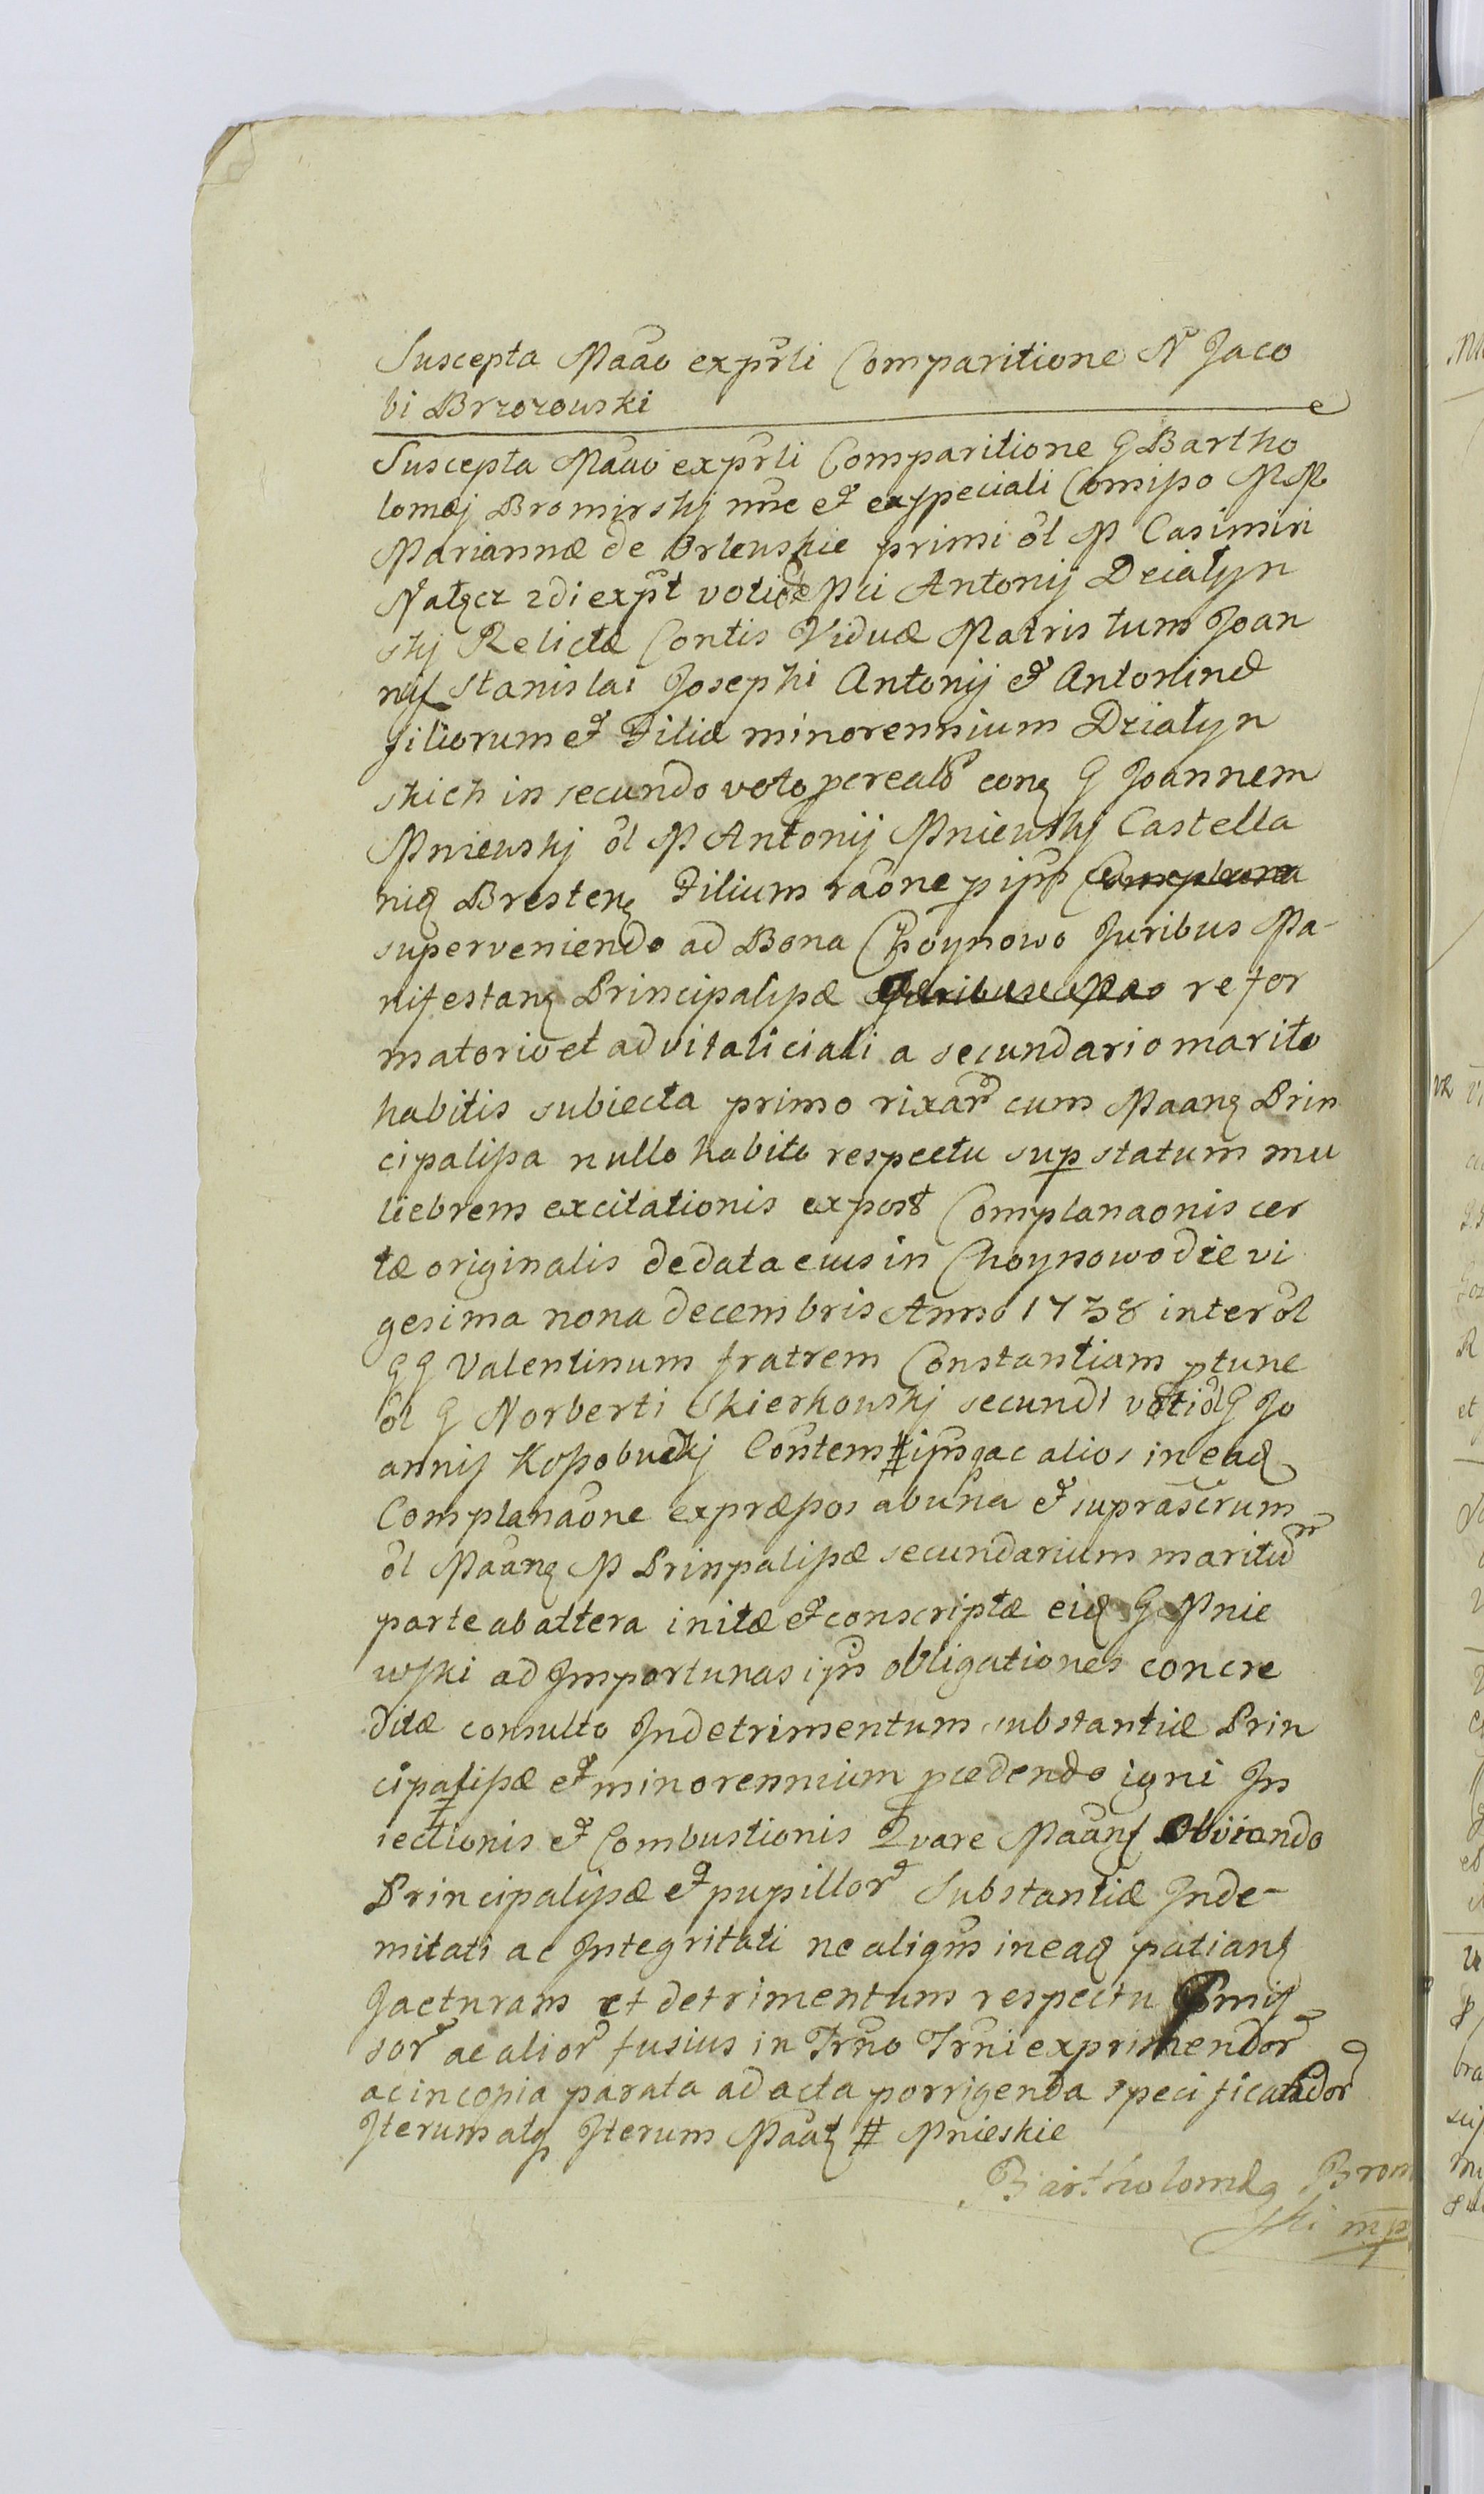 Suscepta Maão expr̃li Comparitione N Jaco
bi Brzozowski
Suscepta Maão expr̃li Comparitione G Bartho
lomæj Bromirskj nũc et exspeciali Comisso M M
Mariannæ de Orlewskie primi õl M Casimiri
Nałęcz 2di expt voti M Antonij Dziatyn
skj Relictæ Contis Viduæ Matris tum Joan
nis Stanislai Josephi Antonij et Antoninæ
filiorum et Filiæ minorennium Działyn
skich in secundo voto pcreatõ conq G Joannem
Mniewskj õl M Antonij Mniewskj Castella
niq Brestenq Filium raõne p ips
superveniendo ad Bona Choynowo Juribus Ma-
nifestanq Principalissæ refor
matorio et advitaliciali a secundario marito
habitis subiecta primo rixar̃ cum Maanq Prin
cipalissa nullo habito respectu sup statum mu
liebrem excitationis expost Complanaonis cer
tæ originalis dedata eius in Choynowo die vi
gesima nona decembris Anno 1738 inter õl
GG Valentinum fratrem Constantiam ptunc
õl G Norberti Skierkowskj secundi voti õl G Jo
annis Kossobuckj Contem # ipsq ac alios in eadq
Complanaõne expræssos abuña et suprascrum
õl Maanq M Prinpalissæ secundarium maritũ
parte ab altera initæ et conscriptæ eidq G Mnie
wski ad Importunas ips obligationes concre
ditæ consulto Indetrimentum substantiæ Prin
cipalissæ et minorennium pcedendo igni In
iectionis et Combustionis Qvare Maanq Obviando
Principalissæ et pupillor̃ Substantiæ Inde-
mitati ac Integritati ne aliqm in eadq patianq
Jacturam et detrimentum respectu Pmis
sor̃ ac alior̃ fusius in Trño Trñi exprimendor̃
ac in copia parata ad acta porrigenda specificandor̃
Iterum atq Iterum Maatq # Mnieskie
Bartholomæq Brom
ski mp